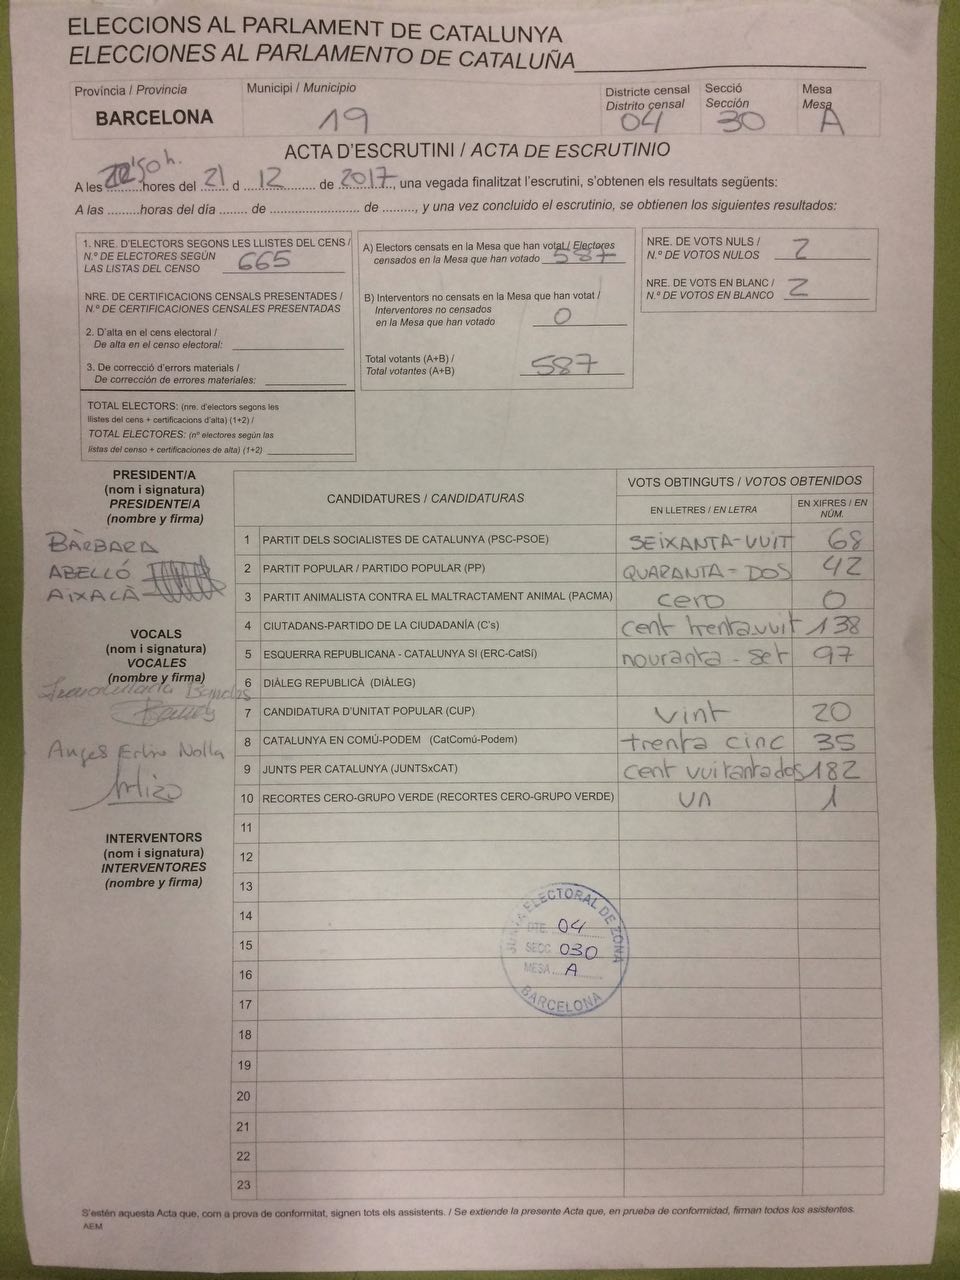 ELECCIONS AL PARLAMENT DE CATALUNYA
ELECCIONES AL PARLAMENTO DE CATALUÑA
Província / Provincia
BARCELONA
Municipi / Municipio
19
Districte censal
Distrito censal
04
Secció
Sección
30
Mesa
Mesa
A
ACTA D'ESCRUTINI / ACTA DE ESCRUTINIO
A les ........ hores del 21 d 12 de 2017, una vegada finalitzat l'escrutini, s'obtenen els resultats següents:
A las ......... horas del día ....... de ........................ de ........, y una vez concluido el escrutinio, se obtienen los siguientes resultados:
1. NRE. D'ELECTORS SEGONS LES LLISTES DEL CENS /
N.º DE ELECTORES SEGÚN
LAS LISTAS DEL CENSO 665
NRE. DE CERTIFICACIONS CENSALS PRESENTADES /
N.º DE CERTIFICACIONES CENSALES PRESENTADAS
2. D'alta en el cens electoral /
De alta en el censo electoral:
3. De correcció d'errors materials /
De corrección de errores materiales:
TOTAL ELECTORS: (nre. d'electors segons les
llistes del cens + certificacions d'alta) (1+2) /
TOTAL ELECTORES: (nº electores según las
listas del censo + certificaciones de alta) (1+2)
A) Electors censats en la Mesa que han votat / Electores
censados en la Mesa que han votado 587
B) Interventors no censats en la Mesa que han votat /
Interventores no censados
en la Mesa que han votado 0
Total votants (A+B) /
Total votantes (A+B) 587
NRE. DE VOTS NULS /
N.º DE VOTOS NULOS 2
NRE. DE VOTS EN BLANC /
N.º DE VOTOS EN BLANCO 2
PRESIDENT/A
(nom i signatura)
PRESIDENTE/A
(nombre y firma)
BÀRBARA
ABELLÓ
AIXALÀ
VOCALS
(nom i signatura)
VOCALES
(nombre y firma)
Anges Nolla
INTERVENTORS
(nom i signatura)
INTERVENTORES
(nombre y firma)
CANDIDATURES / CANDIDATURAS
VOTS OBTINGUTS / VOTOS OBTENIDOS
EN LLETRES / EN LETRA
EN XIFRES / EN
NÚM.
1 PARTIT DELS SOCIALISTES DE CATALUNYA (PSC-PSOE) SEIXANTA-VUIT 68
2 PARTIT POPULAR / PARTIDO POPULAR (PP) QUARANTA-DOS 42
3 PARTIT ANIMALISTA CONTRA EL MALTRACTAMENT ANIMAL (PACMA) cero 0
4 CIUTADANS-PARTIDO DE LA CIUDADANÍA (C's) cent trenta.vuit 138
5 ESQUERRA REPUBLICANA - CATALUNYA SÍ (ERC-CatSí) nouranta-set 97
6 DIÀLEG REPUBLICÀ (DIÀLEG)
7 CANDIDATURA D'UNITAT POPULAR (CUP) vint 20
8 CATALUNYA EN COMÚ-PODEM (CatComú-Podem) trenta cinc 35
9 JUNTS PER CATALUNYA (JUNTSxCAT) cent vuitantados 182
10 RECORTES CERO-GRUPO VERDE (RECORTES CERO-GRUPO VERDE) un 1
11
12
13
14
15
16
17
18
19
20
21
22
23
JUNTA ELECTORAL DE ZONA
DTE. 04
SECC 030
MESA A
BARCELONA
S'estén aquesta Acta que, com a prova de conformitat, signen tots els assistents. / Se extiende la presente Acta que, en prueba de conformidad, firman todos los asistentes.
AEM